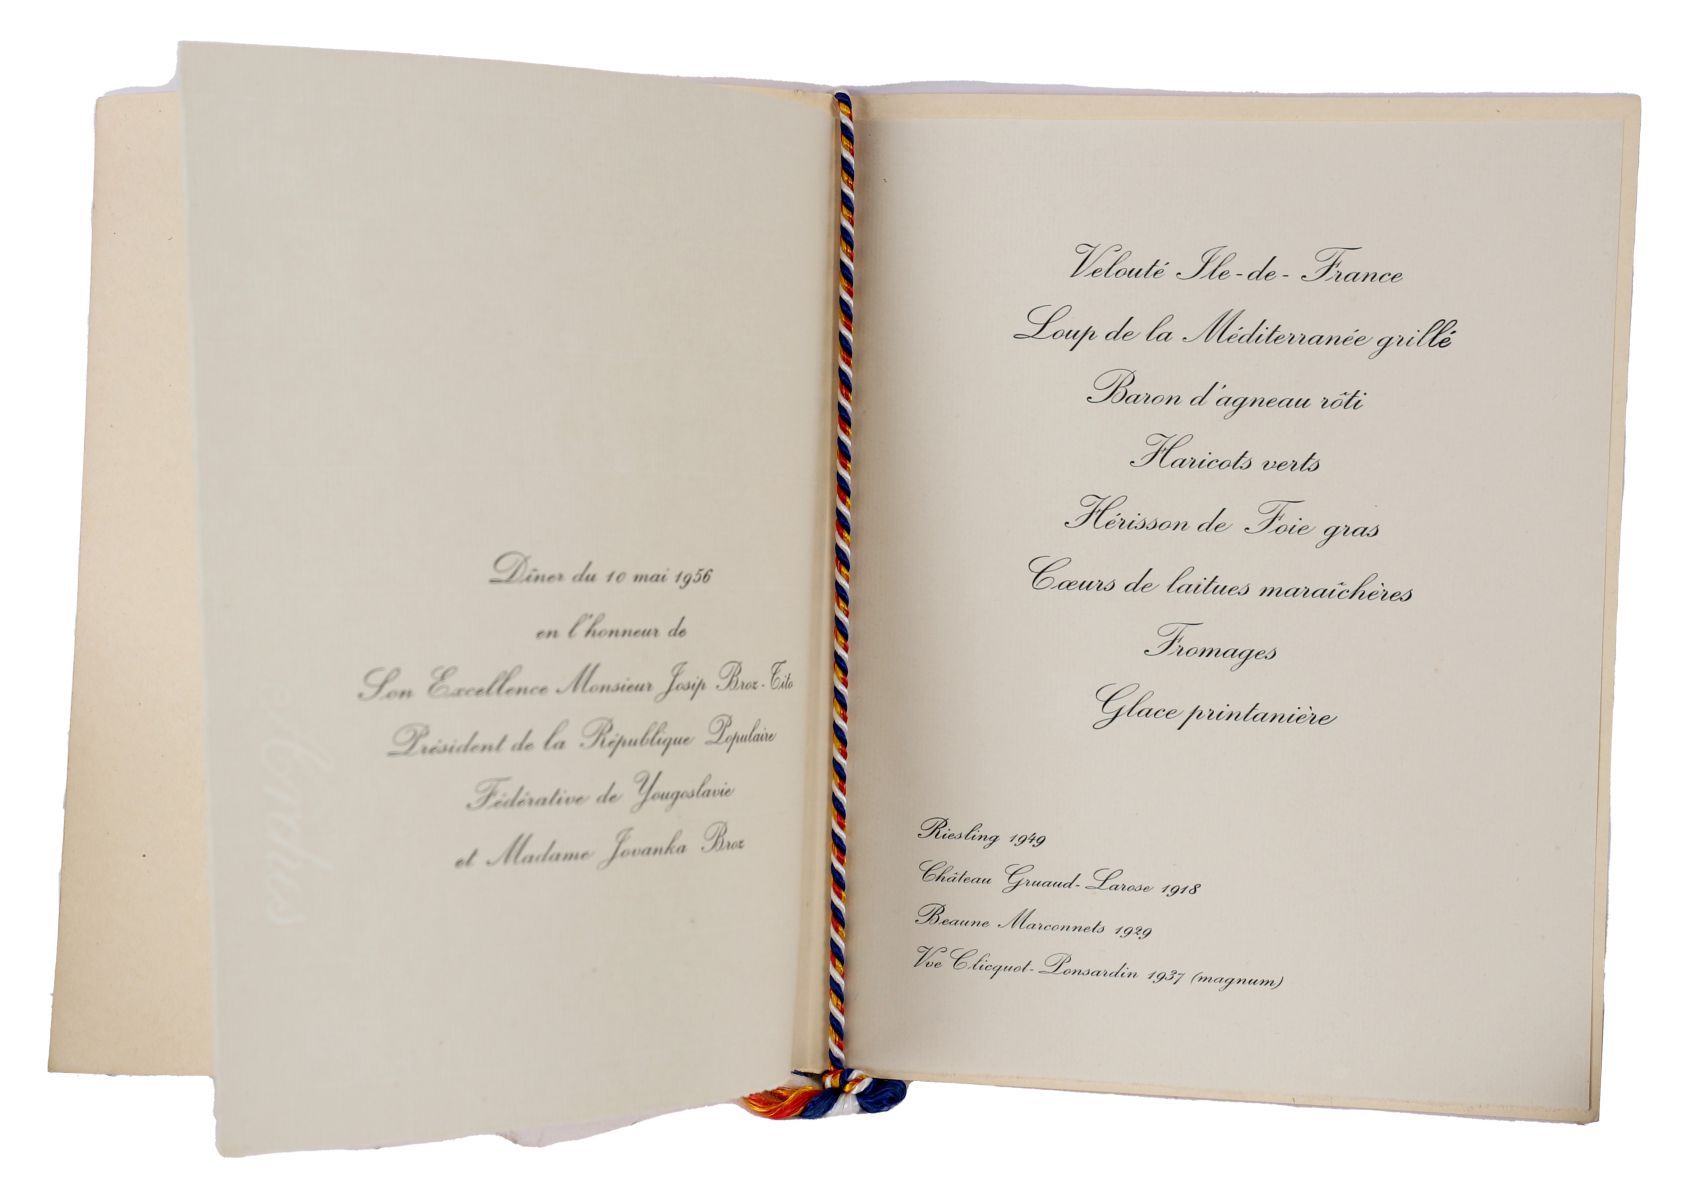 Dîner du 10 mai 1956
en l'honneur de
Son Excellence Monsieur Josip Broz-Tito
Président de la République Populaire
Fédérative de Yougoslavie
et Madame Jovanka Broz
Velouté Ile-de-France
Loup de la Méditerranée grillé
Baron d'agneau rôti
Haricots verts
Hérisson de Foie gras
Cœurs de laitues maraîchères
Fromages
Glace printanière
Riesling 1949
Château Gruaud-Larose 1918
Beaune Marconnets 1929
Vve Clicquot-Ponsardin 1937 (magnum)